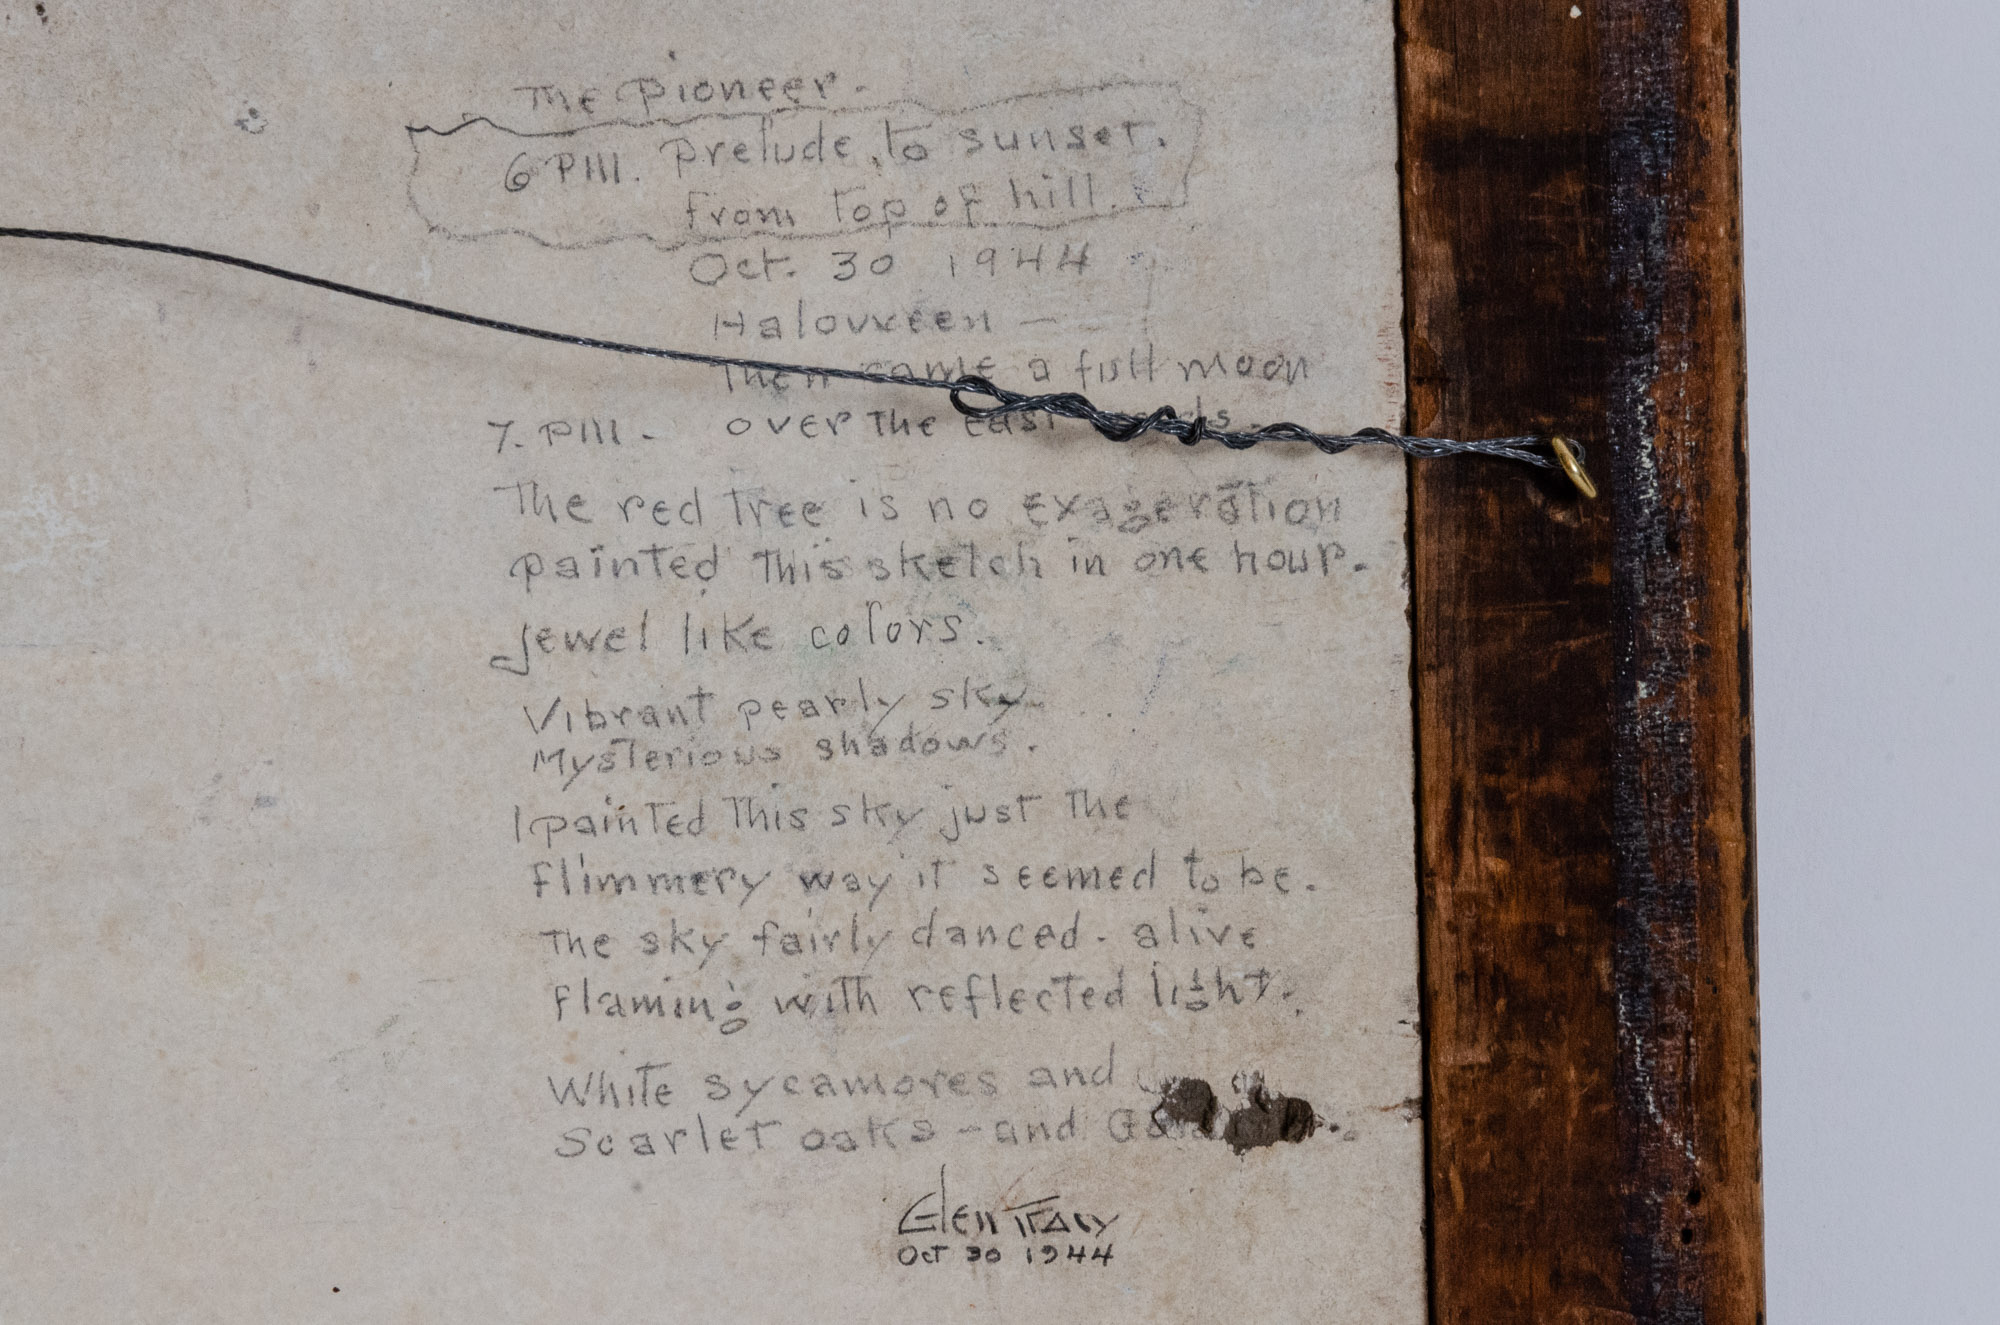 The Pioneer.
6 PM. Prelude to sunset.
from top of hill.
Oct. 30 1944
Haloween —
Then came a full moon
7. PM. - over the east
The red tree is no exageration
painted this sketch in one hour.
Jewel like colors.
Vibrant pearly sky
Mysterious shadows.
I painted this sky just the
flimmery way it seemed to be.
The sky fairly danced - alive
flaming with reflected light.
White sycamores and
Scarlet oaks - and
Glen Tracy
Oct 30 1944